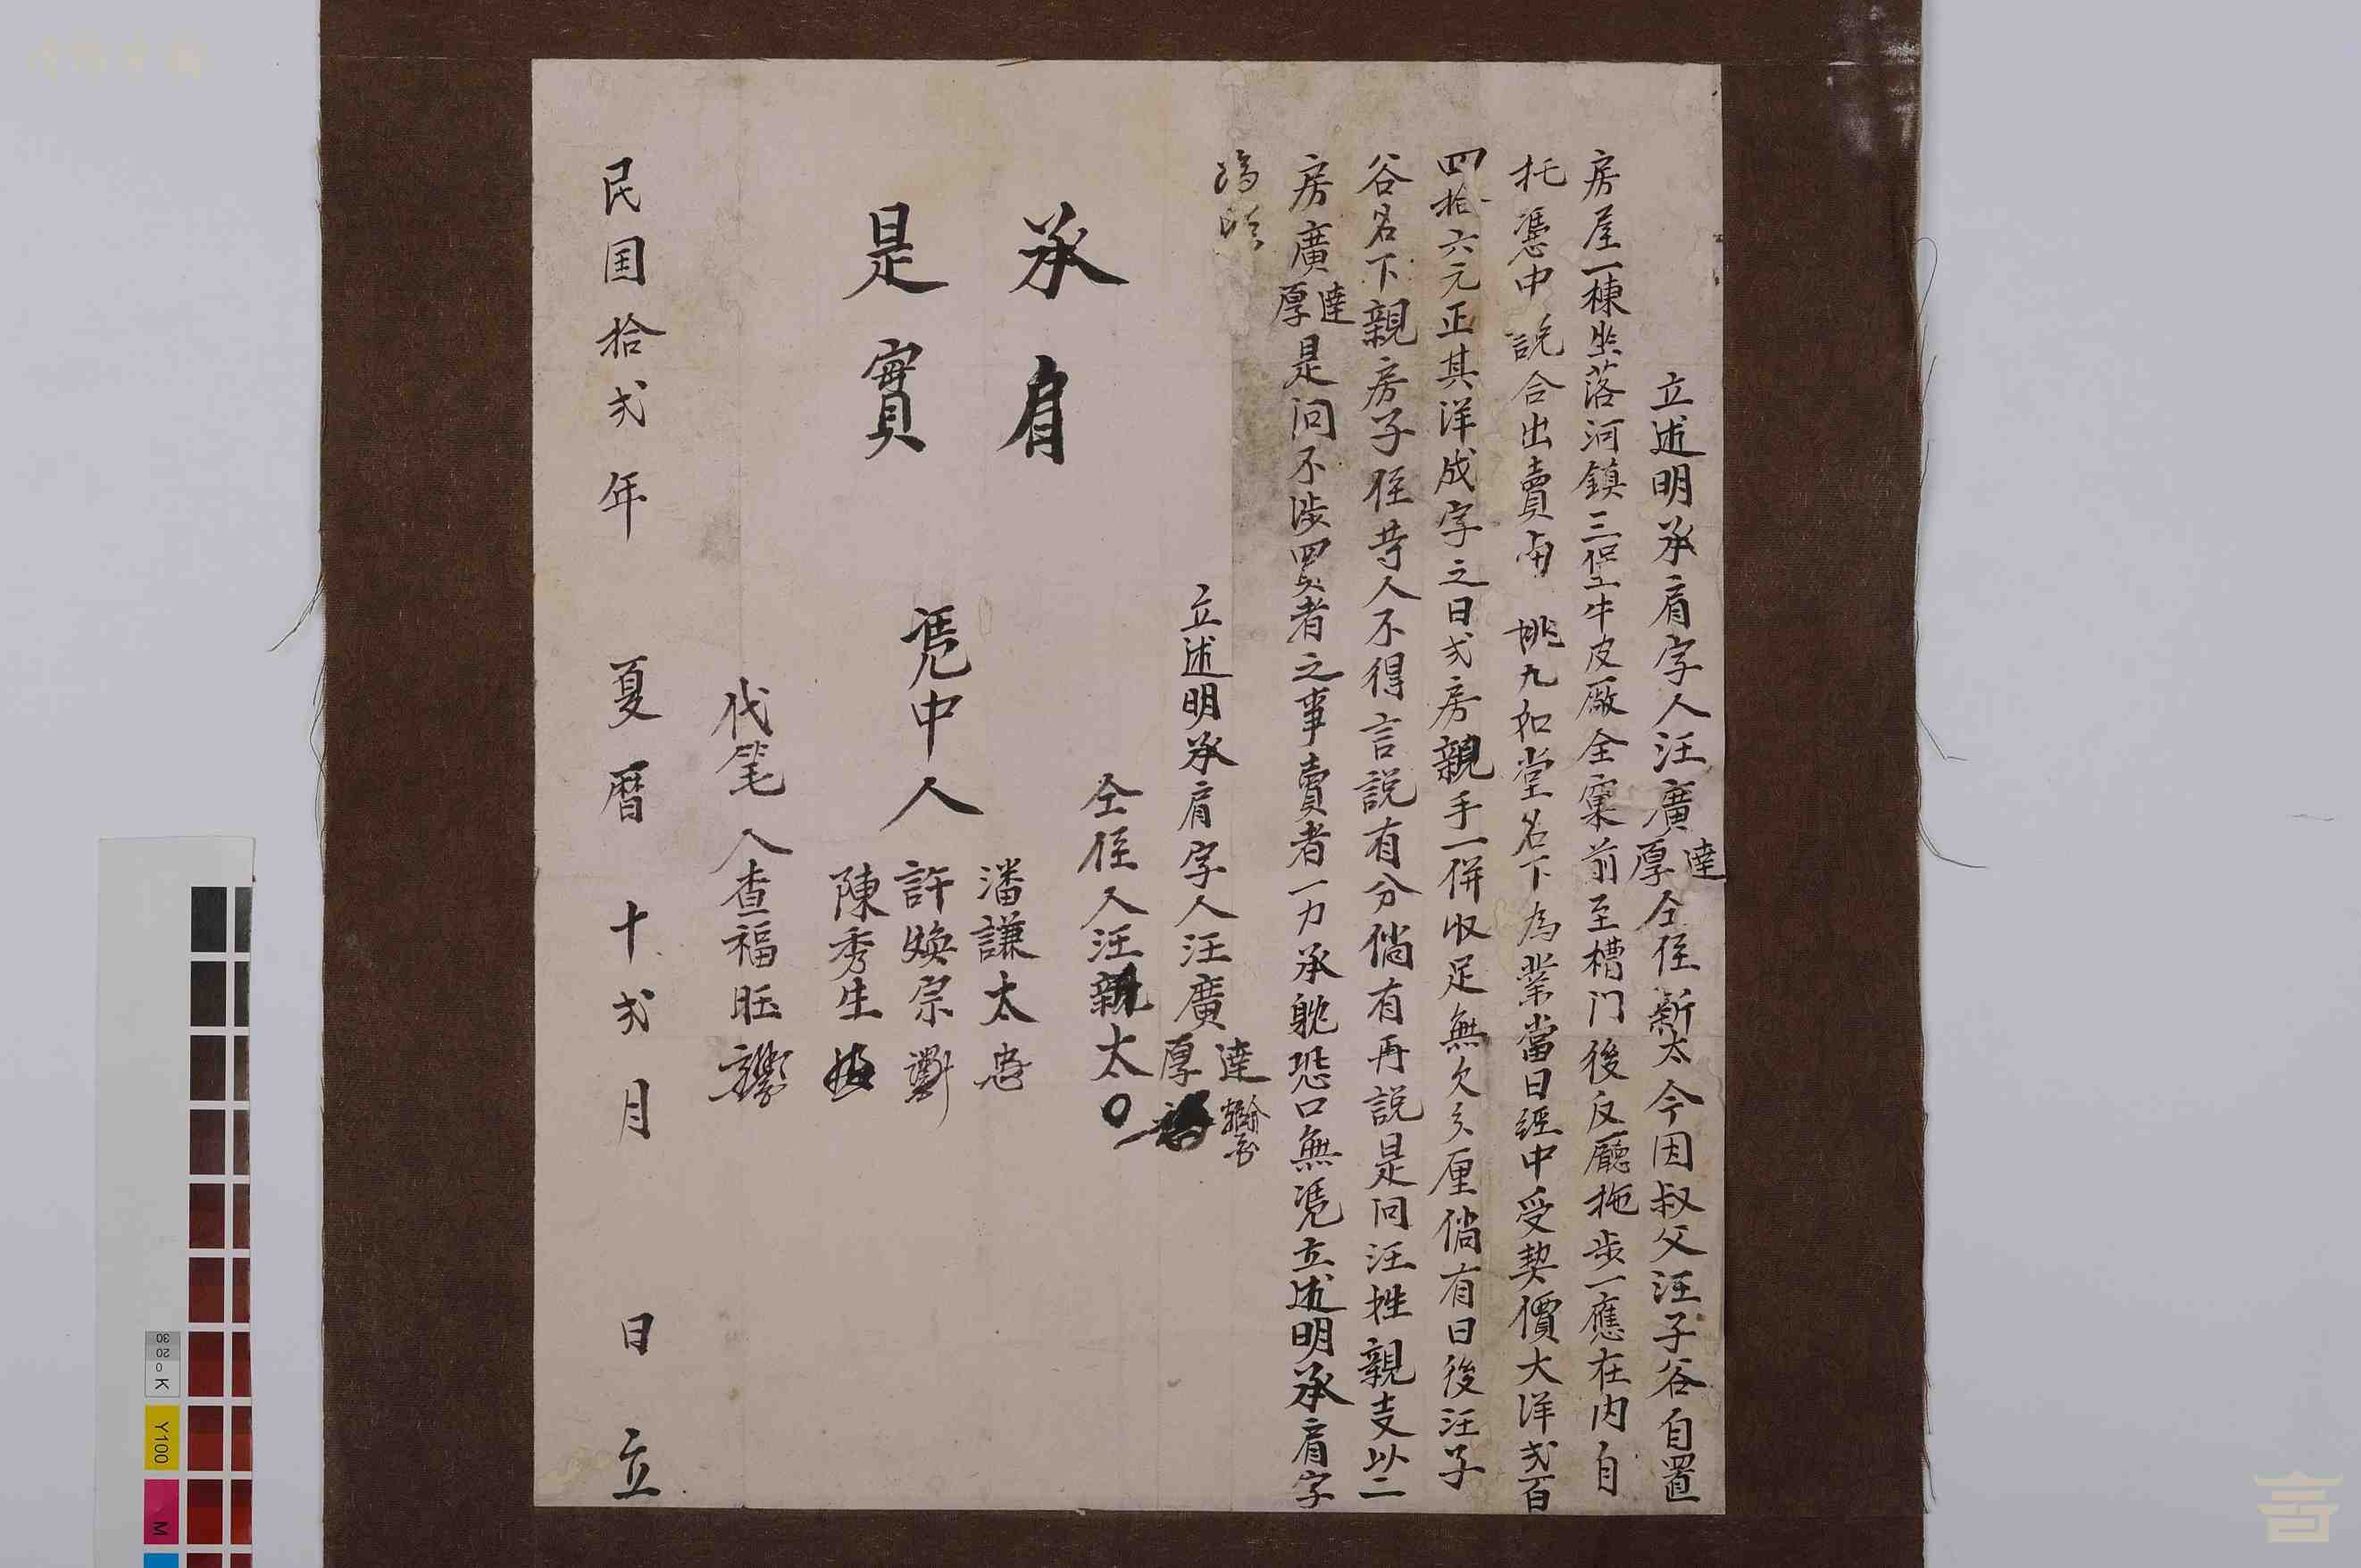 立述明承肩字人汪廣達厚仝侄新太今因叔父汪子谷自置
房屋一棟坐落河鎮三堡牛皮廠全窠前至槽门後反廳拖步一應在内自
托憑中說合出賣與姚九如堂名下為業當日經中受契價大洋弍百
四拾六元正其洋成字之日弍房親手一併收足無欠分厘倘有日後汪子
谷名下親房子侄等人不得言說有分倘有再說是问汪姓親支以二
房廣達厚是问不涉買者之事賣者一力承躭恐口無憑立述明承肩字
為照
立述明承肩字人汪廣達厚
仝侄人汪新太
承肩
是實
憑中人
潘謙太
許煥宗
陳秀生
代笔人查福旺
民国拾弍年 夏曆 十弍月 日立
30 20 0 K
Y100
M